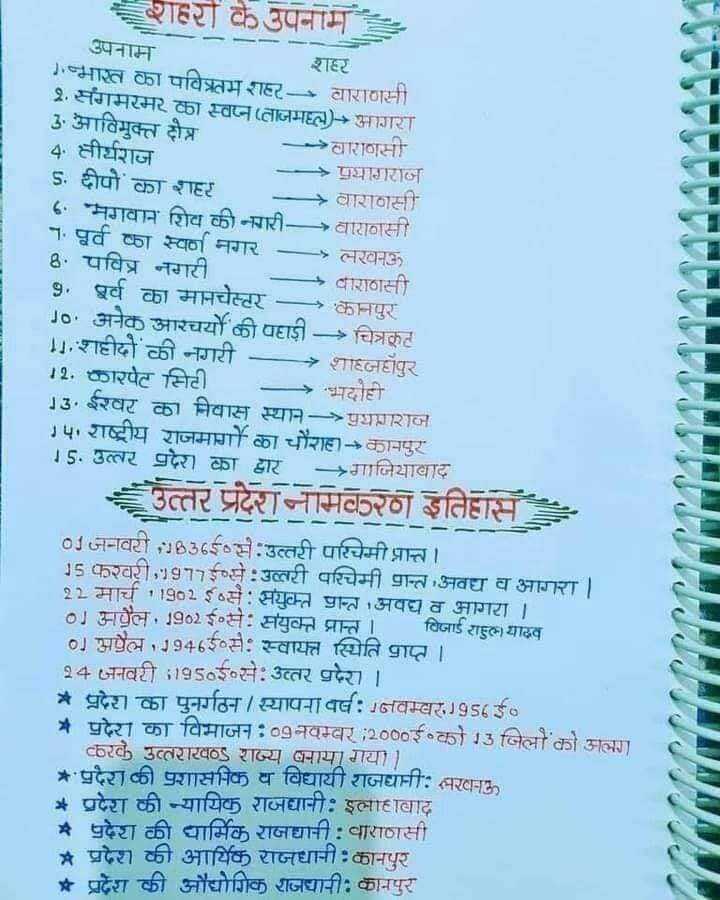 शहरों के उपनाम
उपनाम शहर
1. भारत का पवित्रतम शहर → वाराणसी
2. संगमरमर का स्वप्न (ताजमहल) → आगरा
3. आविमुक्त क्षेत्र → वाराणसी
4. तीर्थराज → प्रयागराज
5. दीपों का शहर → वाराणसी
6. भगवान शिव की नगरी → वाराणसी
7. पूर्व का स्वर्ण नगर → लखनऊ
8. पवित्र नगरी → वाराणसी
9. पूर्व का मानचेस्टर → कानपुर
10. अनेक आश्चर्यों की पहाड़ी → चित्रकूट
11. शहीदों की नगरी → शाहजहाँपुर
12. कारपेट सिटी → भदोही
13. ईश्वर का निवास स्थान → प्रयागराज
14. राष्ट्रीय राजमार्गों का चौराहा → कानपुर
15. उत्तर प्रदेश का द्वार → गाजियाबाद
उत्तर प्रदेश नामकरण इतिहास
01 जनवरी, 1836ई॰से: उत्तरी पश्चिमी प्रान्त।
15 फरवरी, 1977ई॰से: उत्तरी पश्चिमी प्रान्त, अवध व आगरा।
22 मार्च, 1902 ई॰से: संयुक्त प्रान्त, अवध व आगरा।
01 अप्रैल, 1902 ई॰से: संयुक्त प्रान्त। विजार्ड राहुल यादव
01 अप्रैल, 1946ई॰से: स्वायत्त स्थिति प्राप्त।
24 जनवरी, 1950ई॰से: उत्तर प्रदेश।
★ प्रदेश का पुनर्गठन / स्थापना वर्ष: 1 नवम्बर, 1956 ई॰
★ प्रदेश का विभाजन: 09 नवम्बर, 2000ई॰ को 13 जिलों को अलग
करके उत्तराखण्ड राज्य बनाया गया।
★ प्रदेश की प्रशासनिक व विधायी राजधानी: लखनऊ
★ प्रदेश की न्यायिक राजधानी: इलाहाबाद
★ प्रदेश की धार्मिक राजधानी: वाराणसी
★ प्रदेश की आर्थिक राजधानी: कानपुर
★ प्रदेश की औद्योगिक राजधानी: कानपुर